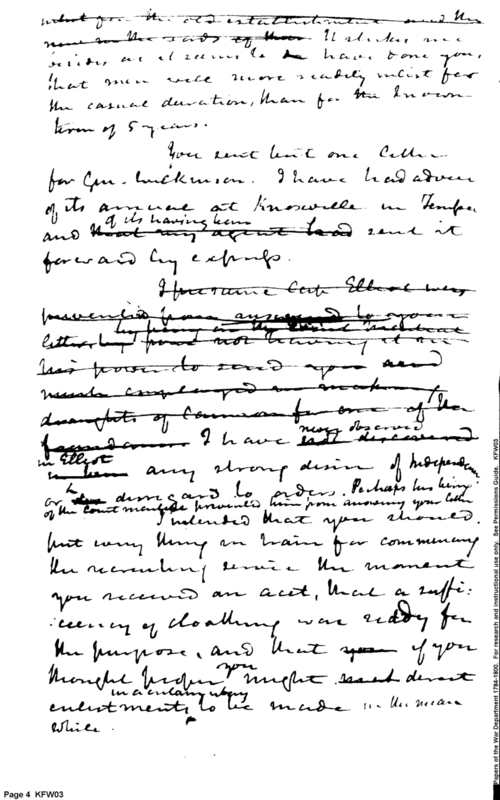 what for the old establishment and the
new in the sads of their It strikes me
besides as it seems to have done you,
that men will more readily enlist for
the casual duration, than for the known
term of 5 years.
You sent but one letter
for Gen. Wilkinson. I have had advice
of its arrival at Knoxville in Tenesee
of its having been
and that my agent had sent it
forward by express.
I presume Cap Elliot was
prevented from answered to your
letter by
his power to send you and
much employed in making
draughts of Cannon for one of the
never observed
I have not discovered
in Elliot
in him any strong desire of Independence
or disregard to orders. Perhaps his being
of the Court martial prevented him from answering your letter
I intended that you should
put every thing in train for commencing
the recruiting service the moment
you received an acct, that a suffi:
ciency of cloathing was ready for
the purpose, and that you if you
you
thought proper might direct
enlistments to be made in the mean
while.
Page 4 KFW03
Papers of the War Department 1784-1800. For research and instructional use only. See Permissions Guide. KFW03